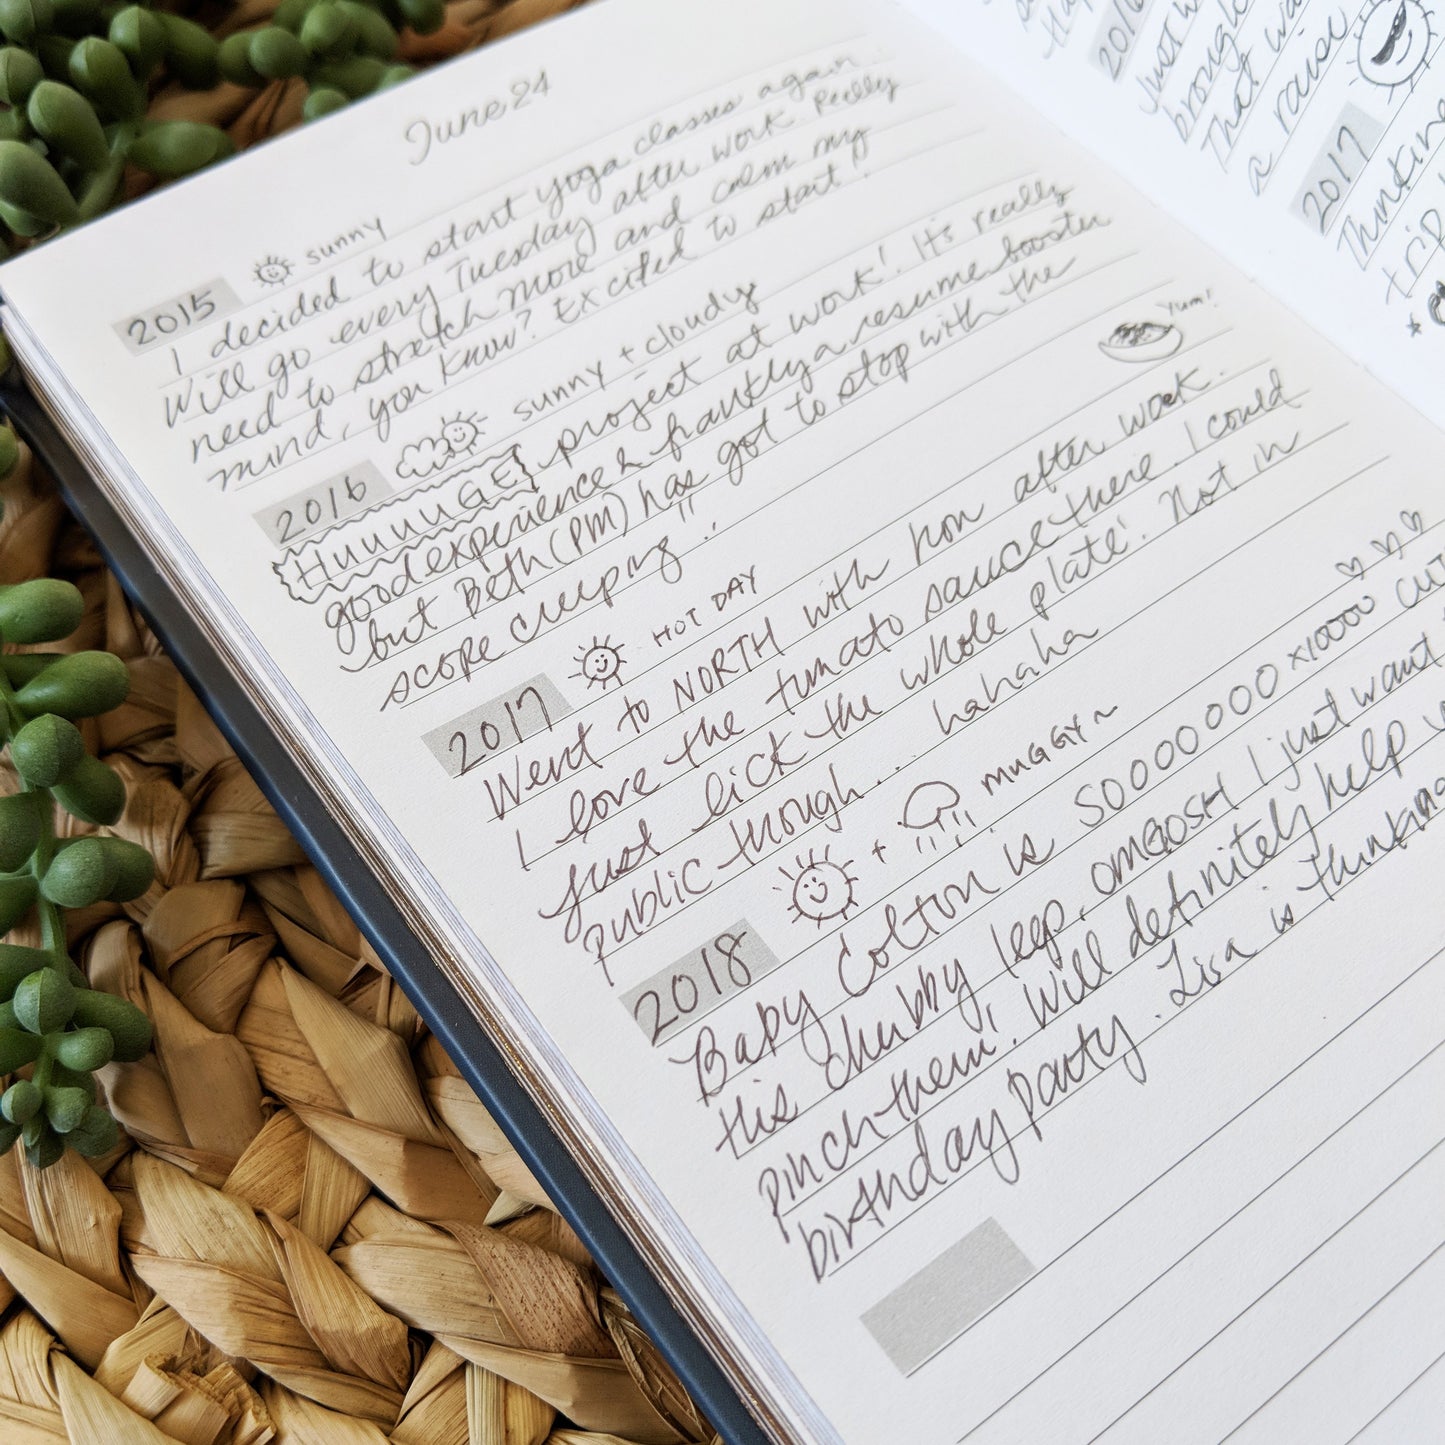 June 24
2015 sunny
I decided to start yoga classes again.
Will go every Tuesday after work. Really
need to stretch more and calm my
mind, you know? Excited to start!
2016 sunny + cloudy
HuuuuGE project at work! It's really
good experience & frankly a resume booster
but Beth (PM) has got to stop with the
scope creeping!!
Yum!
2017 HOT DAY
Went to NORTH with hon after work.
I love the tomato sauce there. I could
just lick the whole plate! Not in
public though... hahaha
2018 + MUGGY~
Baby Colton is SOOOOOOO x10000
His chubby legs, OMGOSH I just want
pinch them! Will definitely help
birthday party. Lisa is thinking
2016
Just
brought
That
a raise
2017
Thinking
trip